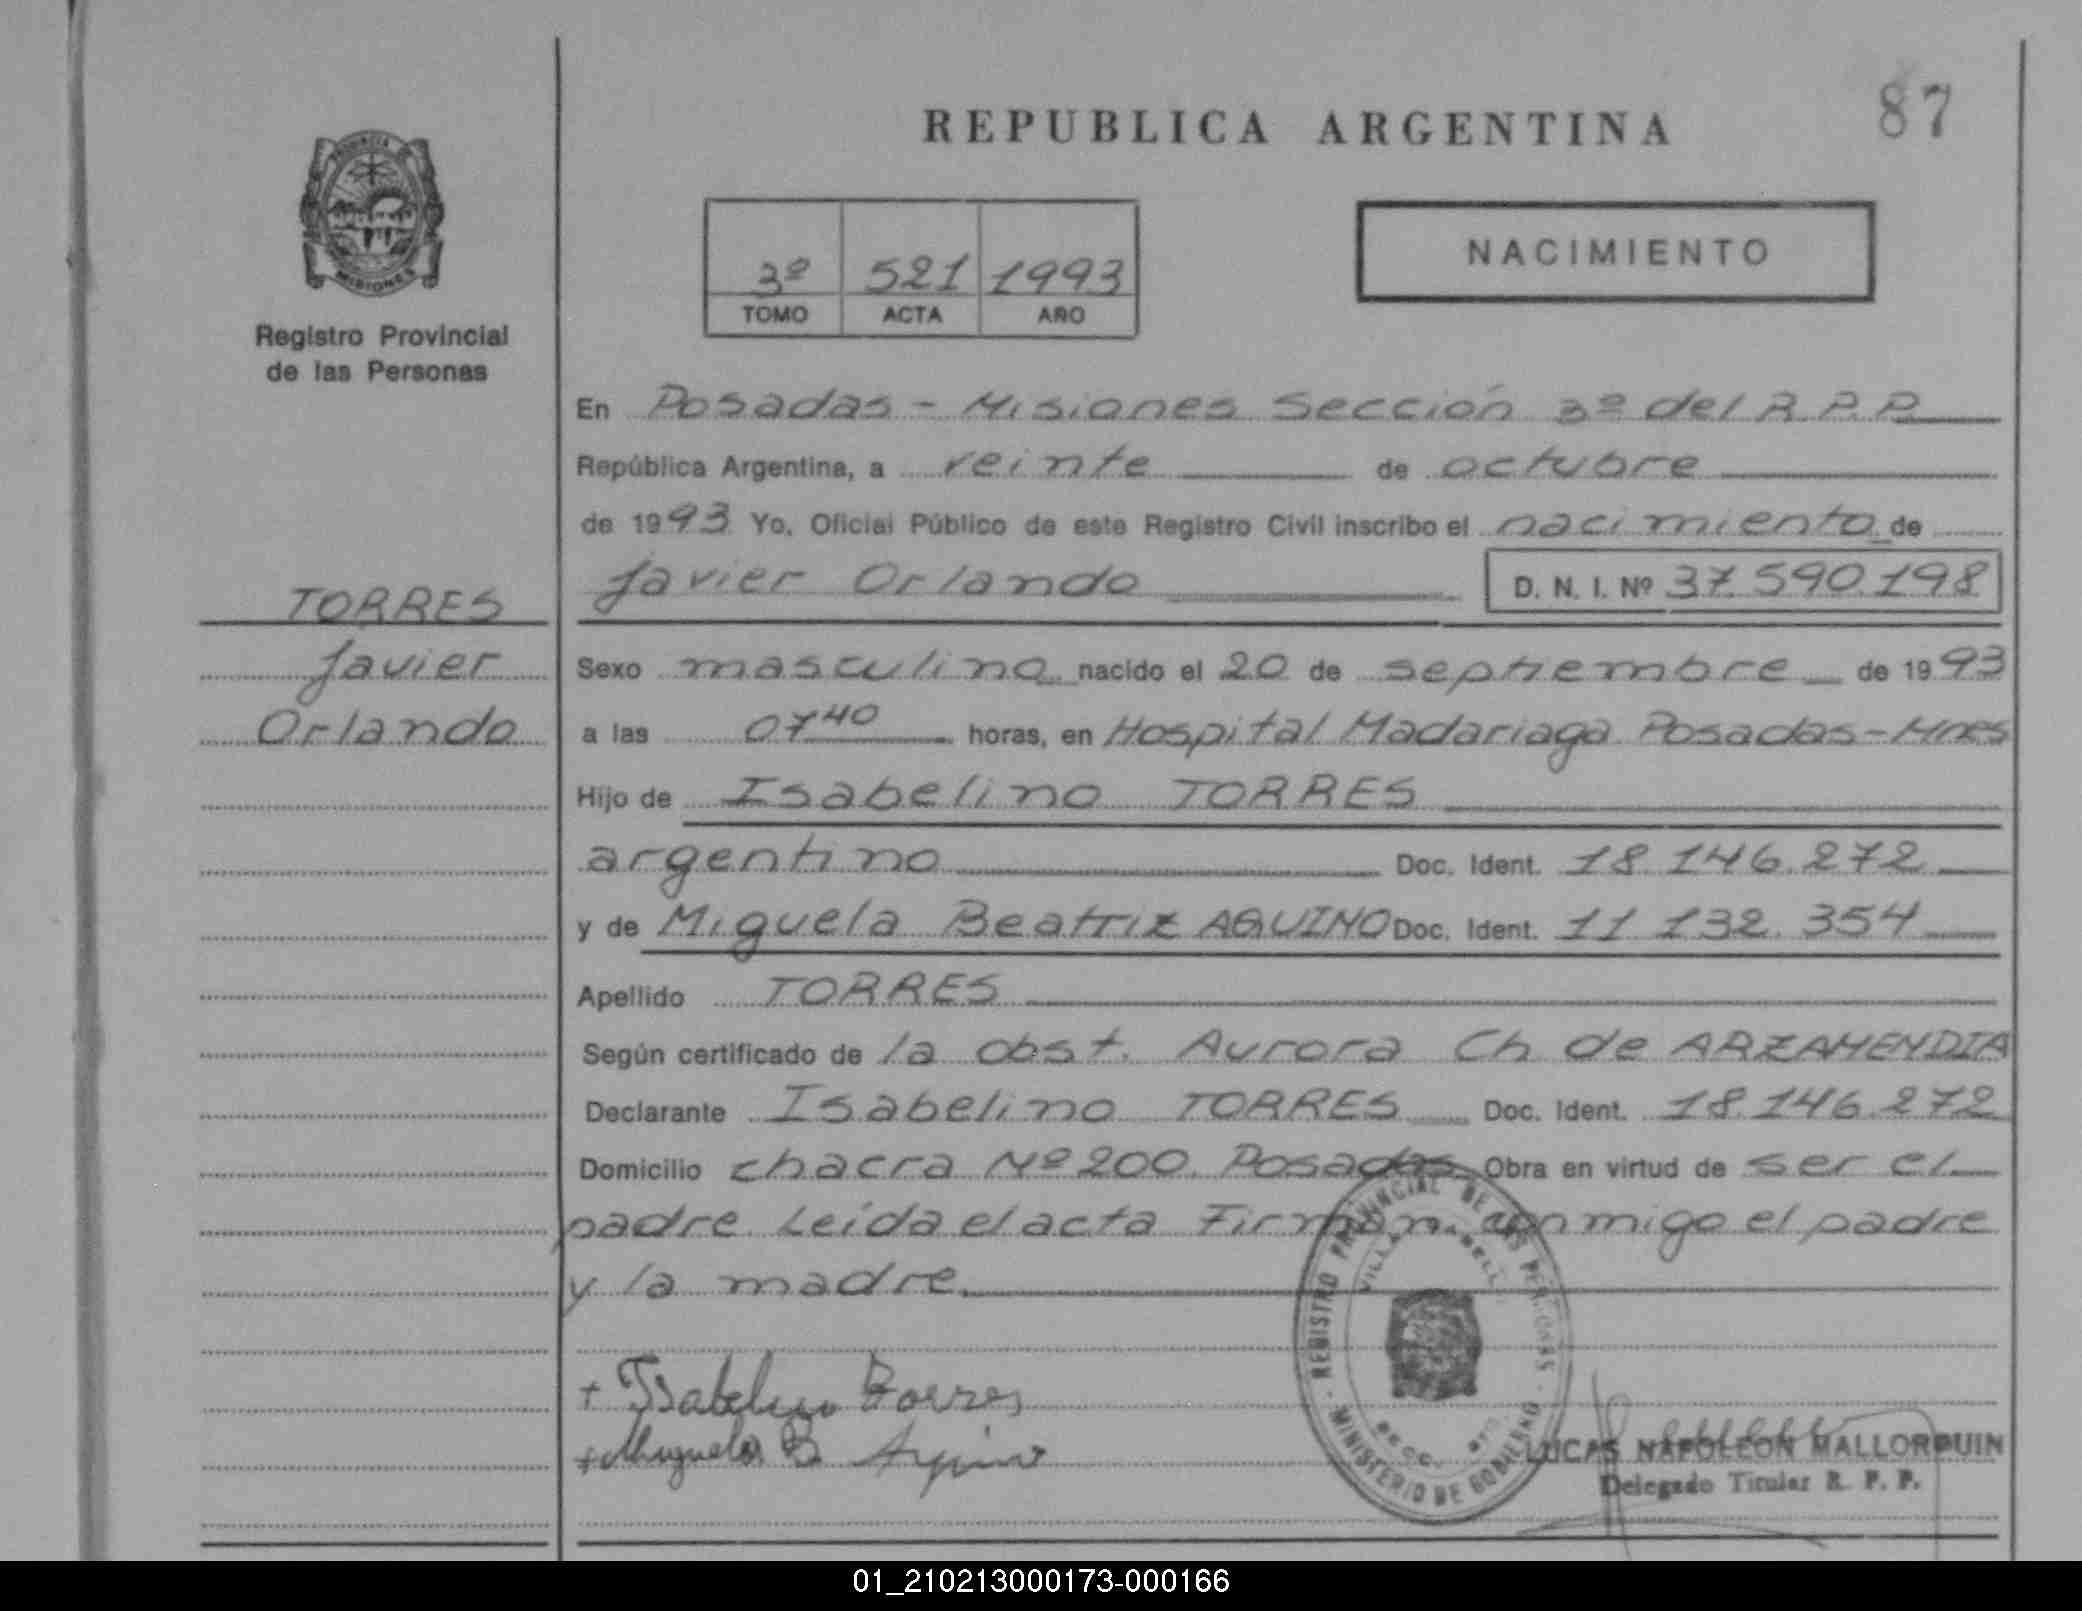 87
REPUBLICA ARGENTINA
PROVINCIA DE
MISIONES
Registro Provincial
de las Personas
3º 521 1993
TOMO ACTA AÑO
NACIMIENTO
En Posadas - Misiones Sección 3º del R.P.P.
República Argentina, a veinte de octubre
de 1993 Yo, Oficial Público de este Registro Civil inscribo el nacimiento de
Javier Orlando D. N. I. Nº 37.590.198
TORRES
Javier
Orlando
Sexo masculino nacido el 20 de septiembre de 1993
a las 07 40 horas, en Hospital Madariaga Posadas-Mnes
Hijo de Isabelino TORRES
argentino Doc. Ident. 18.146.272
y de Miguela Beatriz AQUINO Doc. Ident. 11.132.354
Apellido TORRES
Según certificado de la obst. Aurora Ch de ARZAMENDIA
Declarante Isabelino TORRES Doc. Ident. 18.146.272
Domicilio chacra Nº 200. Posadas Obra en virtud de ser el
padre. Leída el acta Firman conmigo el padre
y la madre.
+ Isabelino Torres
+ Miguela B Aquino
REGISTRO PROVINCIAL DE LAS PERSONAS
MINISTERIO DE GOBIERNO
LUCAS NAPOLEON MALLORQUIN
Delegado Titular R. P. P.
01_210213000173-000166